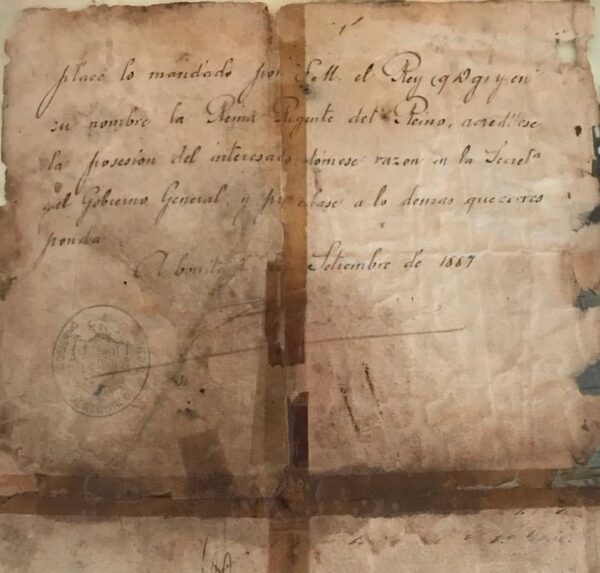 place lo mandado por S. M. el Rey (q D g) y en
su nombre la Reina Regente del Reino, acreditese
la posesión del interesado, tómese razon en la Secreta
del Gobierno General, y procedase a lo demas que corres
ponda
Setiembre de 1887
GOBIERNO
PUERTO-RICO